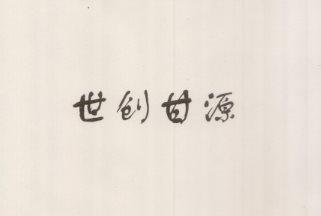 世创甘源